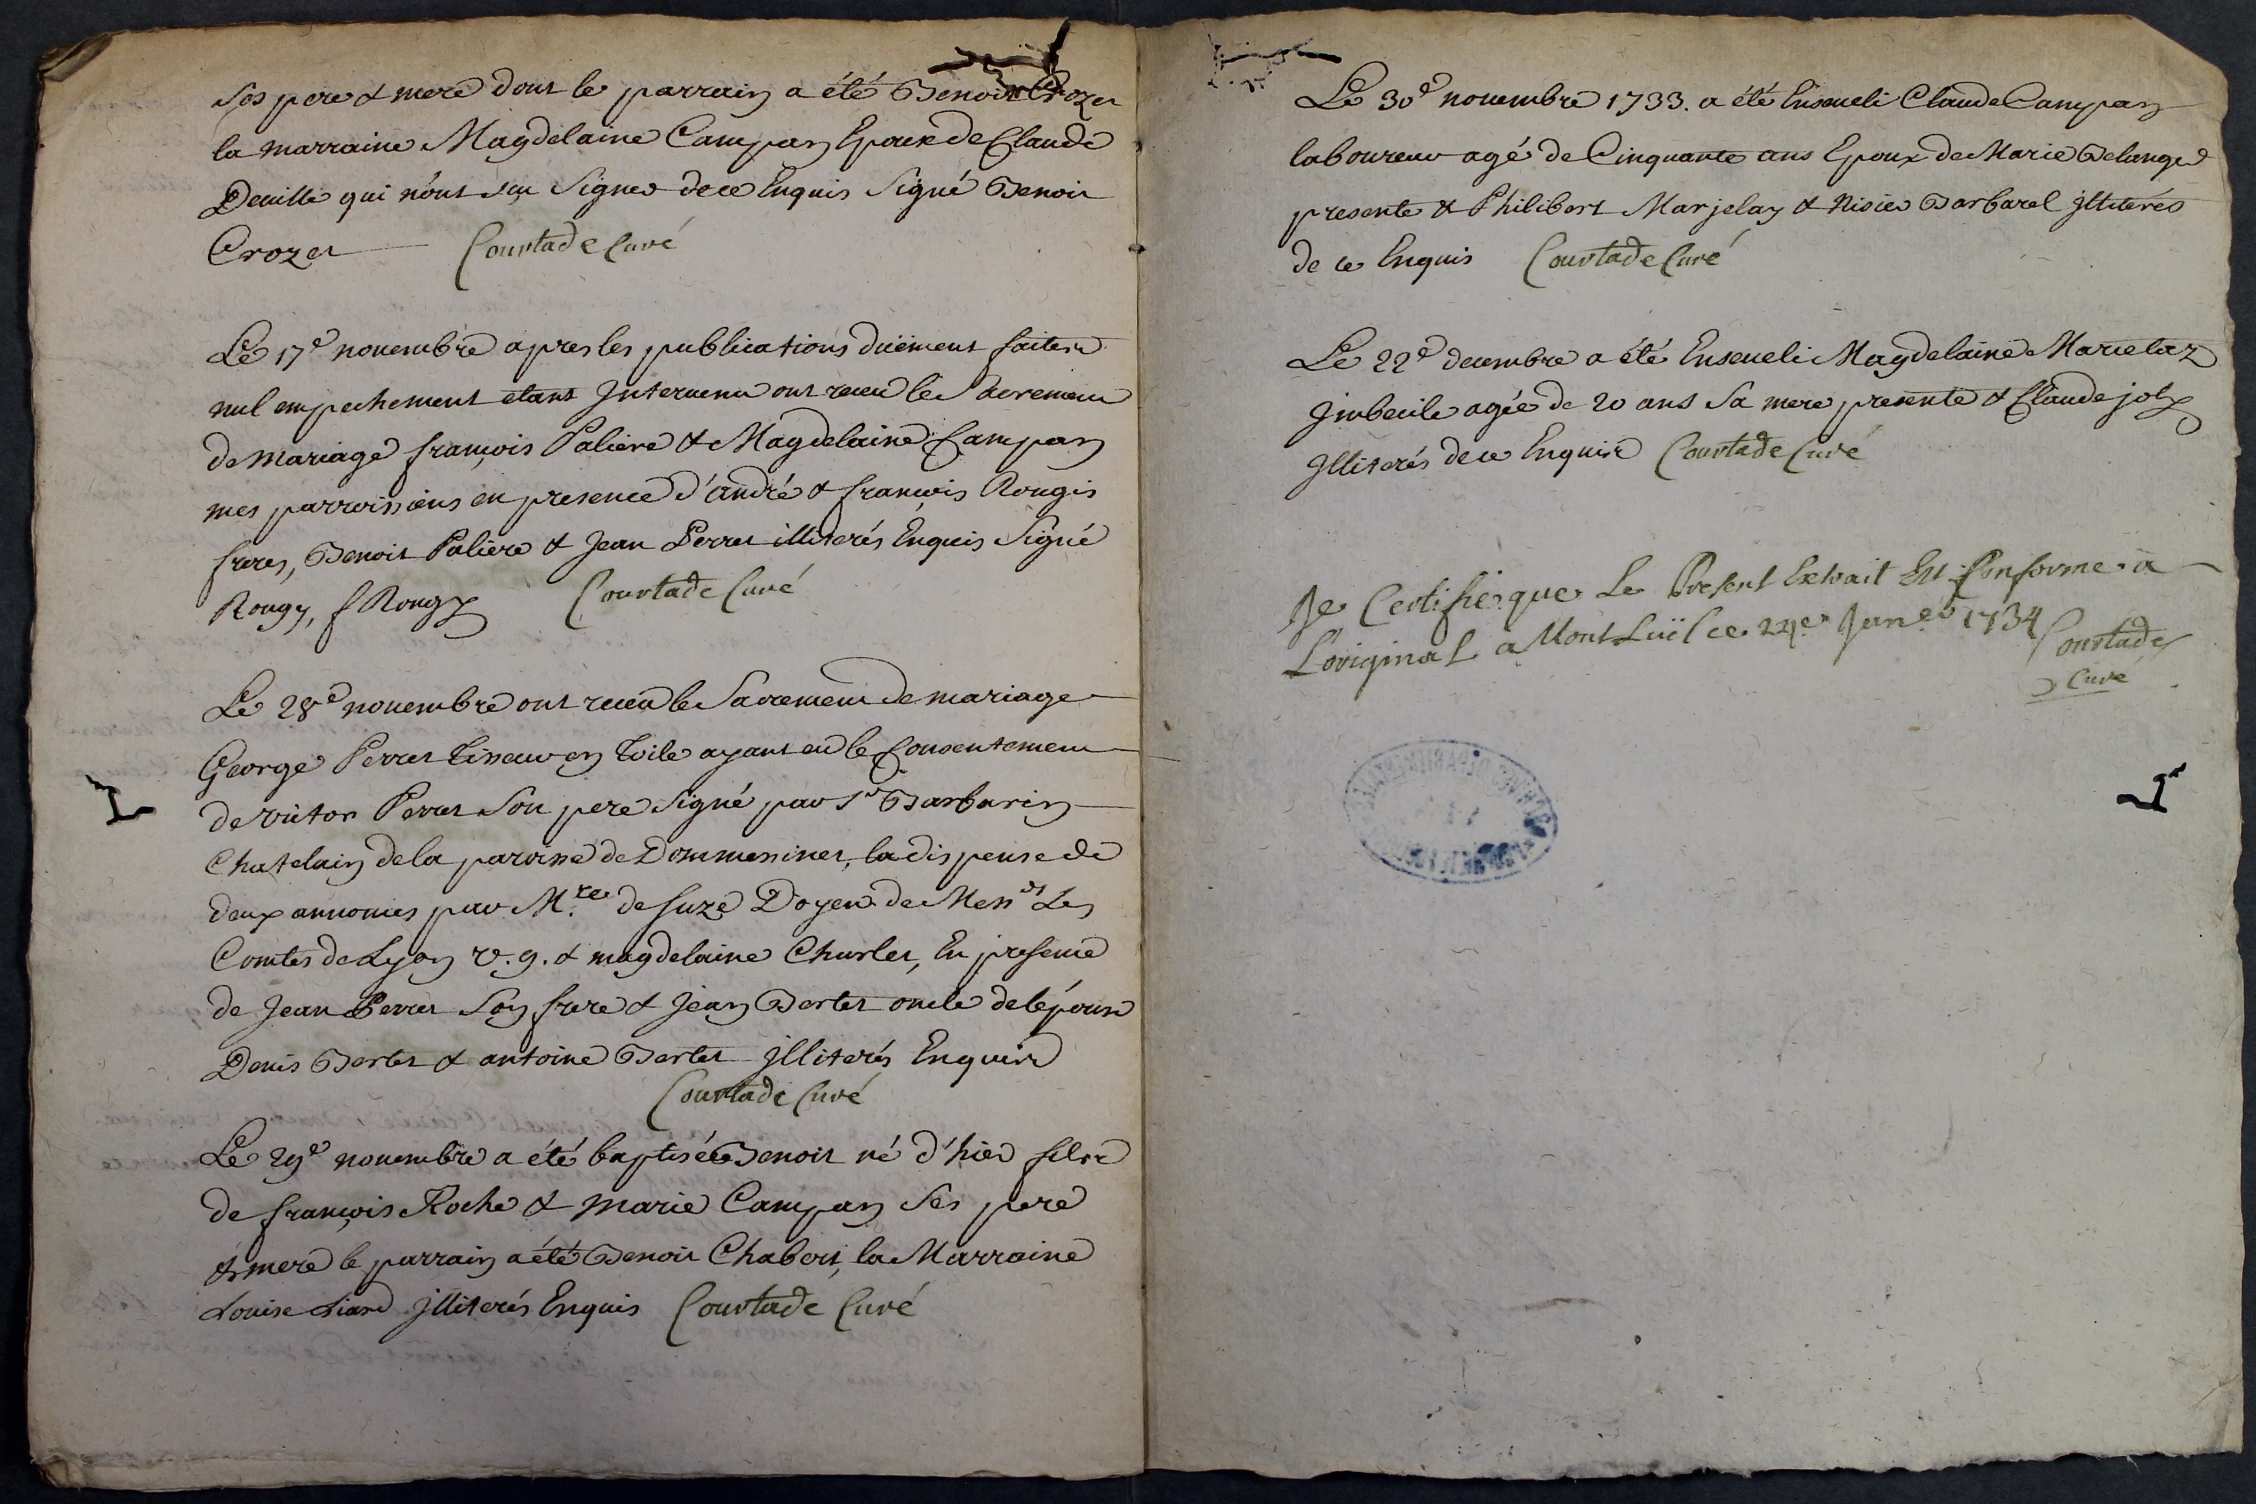 Ses pere & mere dont le parrain a été Benoit Crozet
la marraine Magdelaine Campan Epouse de Claude
Deville qui n'ont sçu signer de ce Enquis signé Benoit
Crozet Courtade Curé
Le 17e novembre apres les publications düement faites
nul empechement etant Intervenu ont receu le Sacrement
de mariage françois Paliere & Magdelaine Campan
mes parroissiens en presence d'andré & françois Rougis
freres, Benoit Paliere & Jean Perret illiterés Enquis Signé
Rougy, f Rougy Courtade Curé
Le 28e novembre ont receu le Sacrement de mariage
George Perret tisseur en toile ayant eu le Consentement
de victor Perret Son pere signé par Sr Barbarin
Chatelain de la paroisse de Dommesines, la dispense de
deux annonces par Mre de Suze Doyen de Messrs Les
Comtes de Lyon v. g. & magdelaine Charlet, En presence
de Jean Perret Son frere & Jean Bertet oncle de lépouse
Denis Bertet & antoine Bertet Jlliterés Enquis
Courtade Curé
Le 29e novembre a été baptisé Benoit né d'hier fils
de françois Roche & marie Campan Ses pere
& mere le parrain a été Benoit Chabert, la Marraine
Louise Liard Jlliterés Enquis Courtade Curé
Le 30e novembre 1733. a été Enseveli Claude Campan
laboureur agé de Cinquante ans Epoux de Marie Belange
presente & Philibert Marjelay & Nisier Barbarel Jlliterés
de ce Enquis Courtade Curé
Le 22e decembre a été Enseveli Magdelaine Marietaz
Jmbecile agée de 20 ans Sa mere presente & Claude joly
Jlliterés de ce Enquis Courtade Curé
Je Certifie que Le Present Extrait Est Conforme a
L'original a MontLüel ce Janer 1734 Courtade
Curé